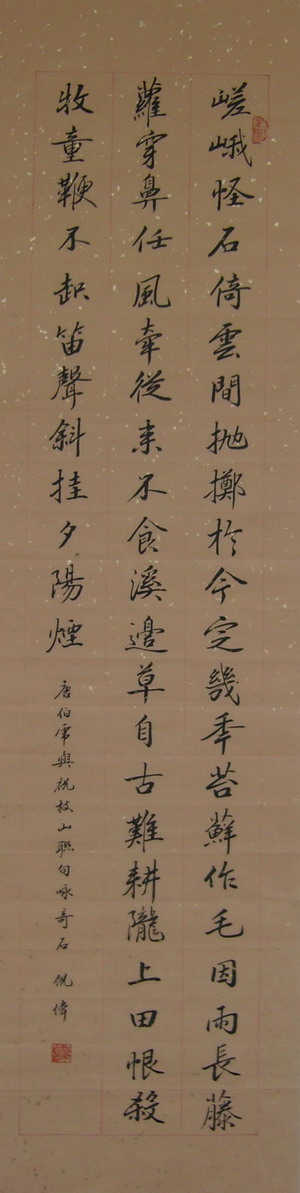 嵯峨怪石倚雲間拋擲於今定幾年苔蘚作毛因雨長藤
蘿穿鼻任風牽從來不食溪邊草自古難耕隴上田恨殺
牧童鞭不起笛聲斜挂夕陽煙
唐伯虎與祝枝山聯句咏奇石 倪偉